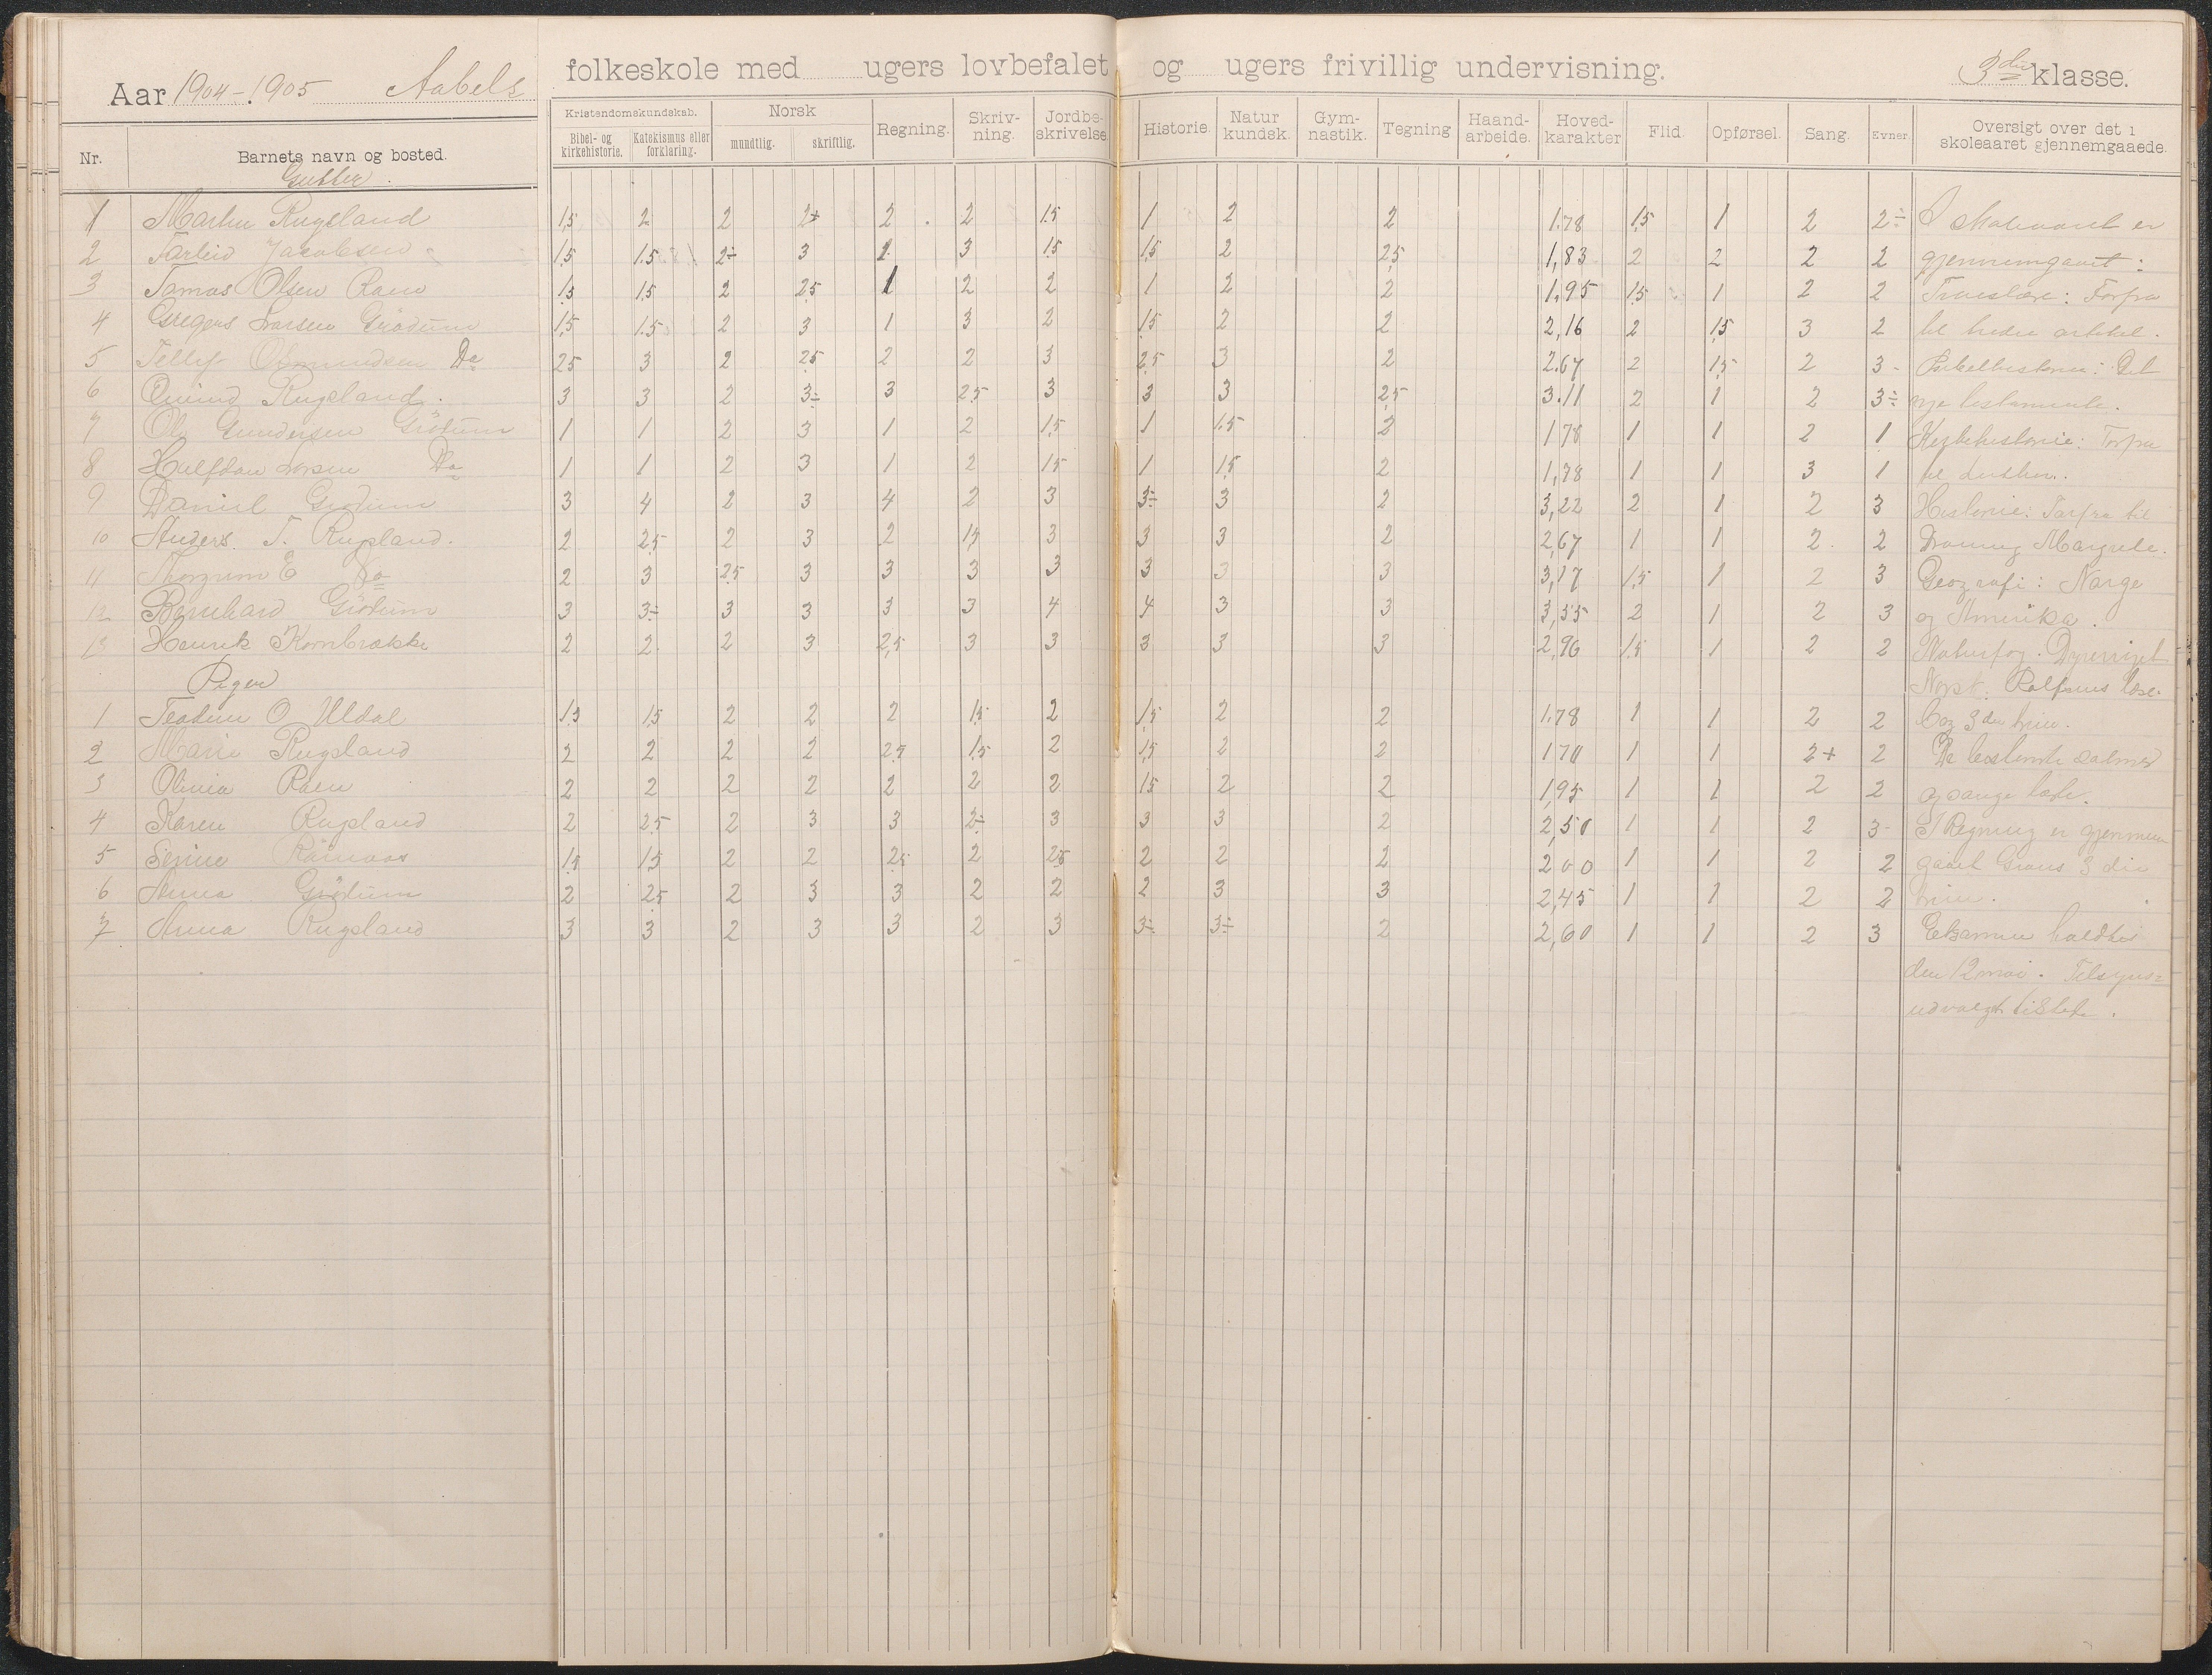 Aar 1904-1905 Aabels folkeskole med ugers lovbefalet og ugers frivillig undervisning. 3die klasse.
Nr. Barnets navn og bosted. Kristendomskundskab. Bibel- og kirkehistorie. Katekismus eller forklaring. Norsk mundtlig. skriftlig. Regning. Skriv-ning. Jordbe-skrivelse. Historie. Natur kundsk. Gym-nastik. Tegning Haand-arbeide. Hoved-karakter Flid Opførsel. Sang. Evner. Oversigt over det i skoleaaret gjennemgaaede.
Gutter.
1 Martin Rugsland 1,5 2 2 2+ 2 2 1.5 1 2 2 1.78 1,5 1 2 2÷ I skoleaaret er
2 Tarleiv Jacobsen 1.5 1.5 2÷ 3 1. 3 1.5 1.5 2 2,5 1,83 2 2 2 2 gjennemgaaet:
3 Tomas Olsen Raen 1.5 1.5 2 2.5 1 2 2 1 2 2 1.95 1.5 1 2 2 Troeslære: Forfra
4 Gregers Larsen Grödum 1,5 1.5 2 3 1 3 2 1.5 2 2 2,16 2 1.5 3 2 til tredie artikel.
5 Tellef Do 2.5 3 2 2.5 2 2 3 2.5 3 2 2.67 2 1.5 2 3- Bibelhistorie: Det
6 Öivind Rugsland. 3 3 2 3÷ 3 2.5 3 3 3 2,5 3.11 2 1 2 3÷ nye testamente.
7 Ole Gundersen Grödum 1 1 2 3 1 2 1.5 1 1.5 2 1 78 1 1 2 1 Kirkehistorie: Forfra
8 Halfdan Larsen Do 1 1 2 3 1 2 1.5 1 1.5 2 1,78 1 1 3 1 til
9 Daniel Grödum 3 4 2 3 4 2 3 3÷ 3 2 3,22 2 1 2 3 Historie: Forfra til
10 Anders T. Rugsland. 2 2.5 2 3 2 1.5 3 3 3 2 2,67 1 1 2. 2 Droning Margrete.
11 Do 2 3 2.5 3 3 3 3 3 3 3 3,17 1.5 1 2 3 Geografi: Norge
12 Bernhard Grödum 3 3÷ 3 3 3 3 4 4 3 3 3,55 2 1 2 3 og Amerika.
13 Henrik Kornbrække 2 2 2 3 2,5 3 3 3 3 3 2,96 1.5 1 2 2 Naturfag. Dyreriget
Piger Norsk. Rolfsens læse-
1 Teodine O Uldal 1.5 1.5 2 2 2 1.5 2 1.5 2 2 1.78 1 1 2 2 bog 3die trin.
2 Marie Rugsland 2 2 2 2 2.5 1.5 2 1.5 2 2 1 70 1 1 2+ 2 De bestemte salmer
3 Olivia Raen 2 2 2 2 2 2 2 1.5 2 2 1,95 1 1 2 2 og sange lært.
4 Karen Rugsland 2 2.5 2 3 3 2÷ 3 3 3 2 2,50 1 1 2 3- I Regning er gjennem
5 Serine 1.5 1.5 2 2 2.5 2 2.5 2 2 2 2 00 1 1 2 2 gaaet 3die
6 Anna Grödum 2 2.5 2 3 3 2 2 2 3 3 2,45 1 1 2 2 trin.
7 Anna Rugsland 3 3 2 3 3 2 3 3÷ 3÷ 2 2,60 1 1 2 3 Eksamen holdtes
den 12 mai. Tilsyns=
udvalget tilstede.